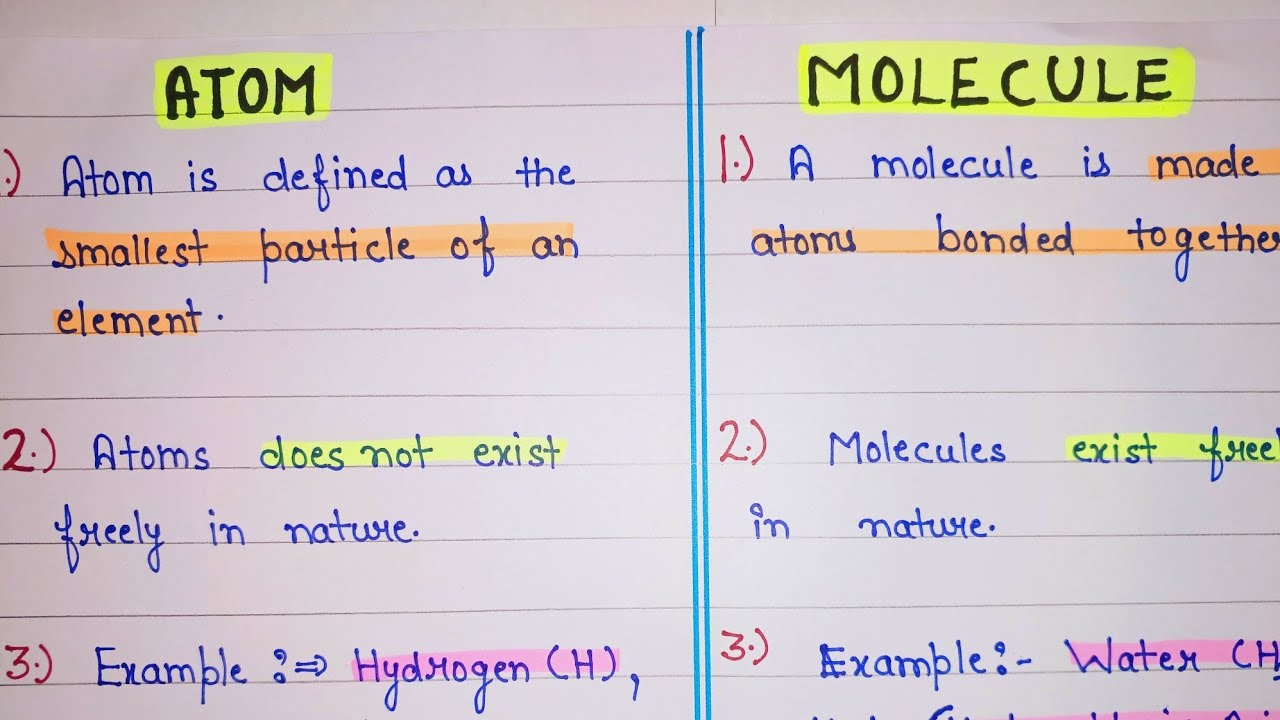 ATOM
.) Atom is defined as the
smallest particle of an
element.
2.) Atoms does not exist
freely in nature.
3.) Example :⇒ Hydrogen (H),
MOLECULE
1.) A molecule is made
atoms bonded together
2.) Molecules exist freel
in nature.
3.) Example:- Water (H